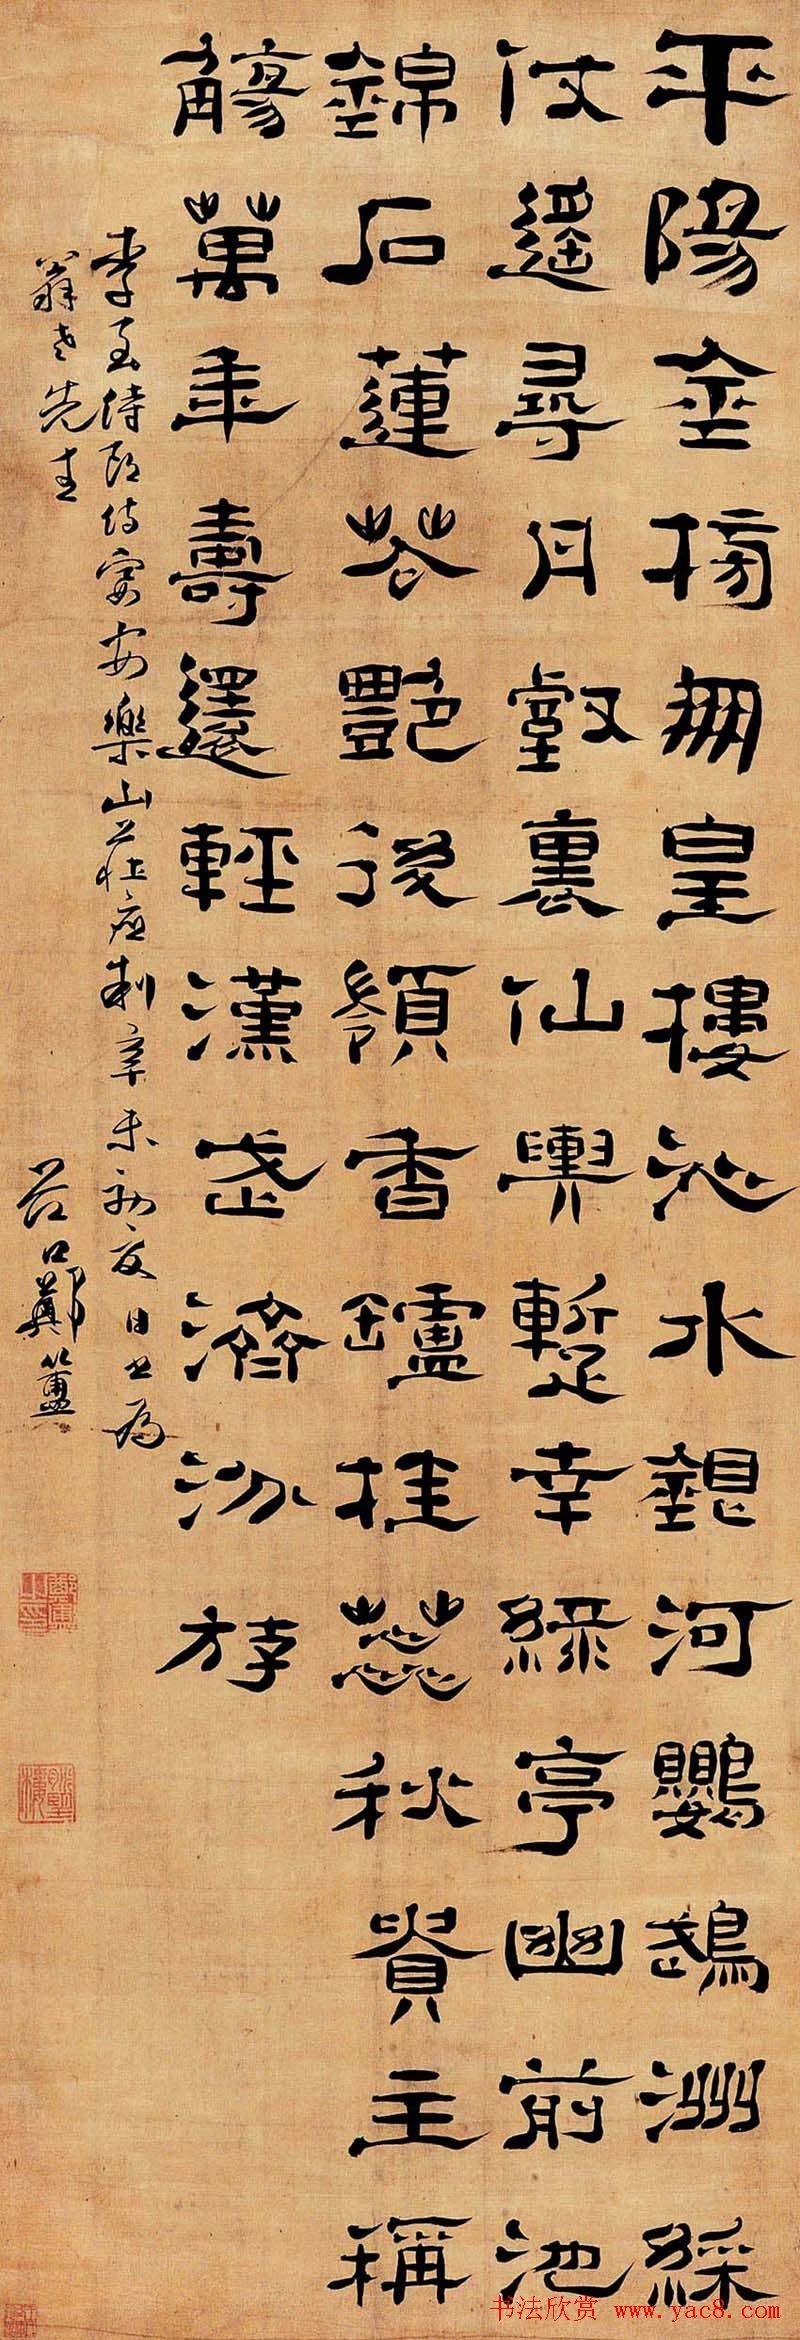 平陽金榜鳳皇樓沁水銀河鸚鵡洲綵
仗遙尋丹壑裏仙輿暫幸綠亭幽前池
錦石蓮花艷後嶺香罏桂蕊秋貴主稱
觴萬年壽還輕漢武濟汾斿
李侍郎侍宴安樂山莊應制辛未初夏日書為
翁老先生
谷口鄭簠
鄭簠之印
书法欣赏 www.yac8.com